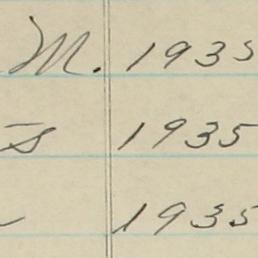 M. 1935
s 1935
1935